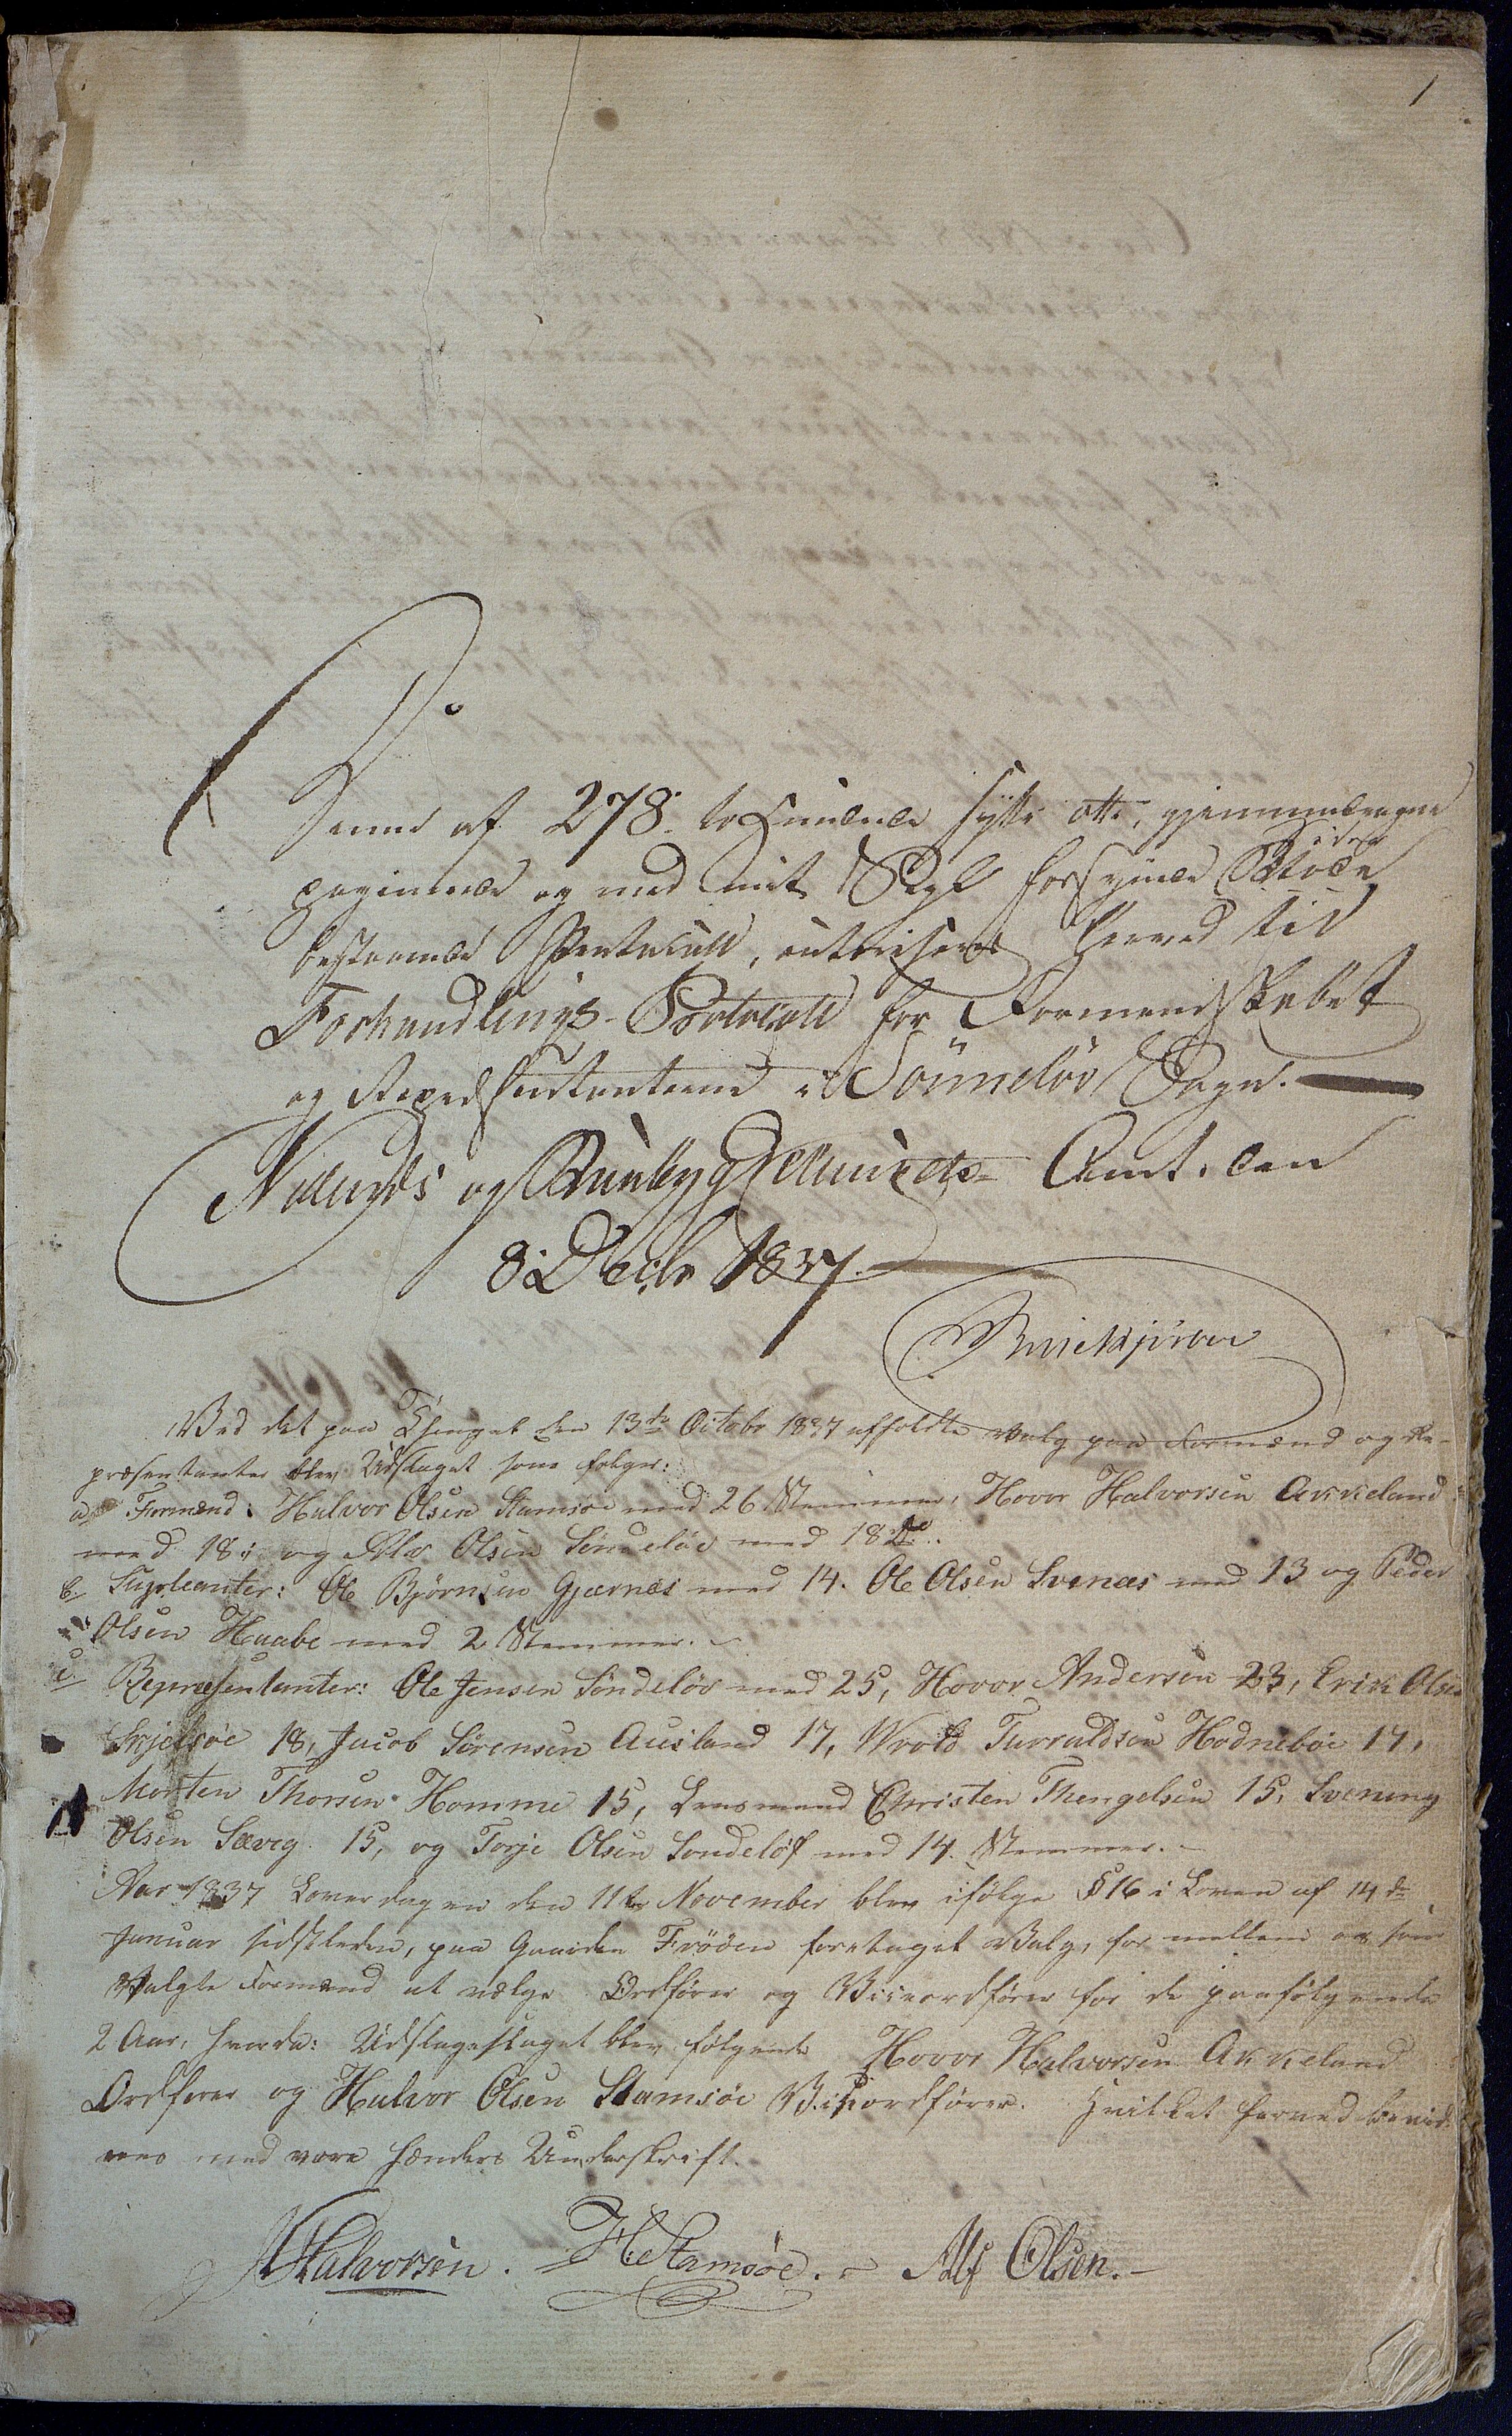 1
Denne af 278. to Hundrede sytti otte, gjennemdragne
paginerede og med mit Segl forsynede Sider
bestaaende Protocoll, autoriseres herved til
Forhandlings-Protocoll for Formandskabet
og Repræsentanterne i Sönneløv Sogn.
Nedenæs og Raabygdelaugets Amt. den
8: Decbr 1837.
Ved det paa Thinget den 13de Octobr 1837 afholdte Valg paa Formænd og Re-
præsentanter blev Udslaget som følger:
a, Formænd: Halvor Olsen Stamsøe med 26 Stemmer, Hovor Halvorsen Akkeland
med 18; og Alv Olsen Søndeløv med 18 do.
b. Supleanter: Ole Bjørnsen Gjærnæs med 14. Ole Olsen Svenæs med 13 og Peder
Olsen Haabe med 2 Stemmer. -
c. Repræsentanter: Ole Jensen Søndeløv med 25, Hovor Andersen 23, Erik Olsen
Skjelsøe 18, Jacob Sørensen Ausland 17, Wrold Tarraldsen Hodnebøe 17,
Morten Thorsen Homme 15, Lensmand Christen Thengelsen 15, Svenung
Olsen Sævig 15, og Torje Olsen Søndeløf med 14. Stemmer. -
Aar 1837 Løverdagen den 11te November blev ifølge § 16 i Loven af 14de
Januar sidstleden, paa Gaarden Frøoen foretaget Valg, for mellem os som
Valgte Formænd at vælge Ordfører og Viceordfører for de paafølgende
2 Aar, hvorda: Udslaget blev følgende Hovor Halvorsen Akkeland
Ordfører og Halvor Olsen Stamsøe Viceordfører. Hvilket herved bevid-
nes med vore Hænders Underskrift.
HHalvorsen. H. Stamsøe. - Alf Olsen. -